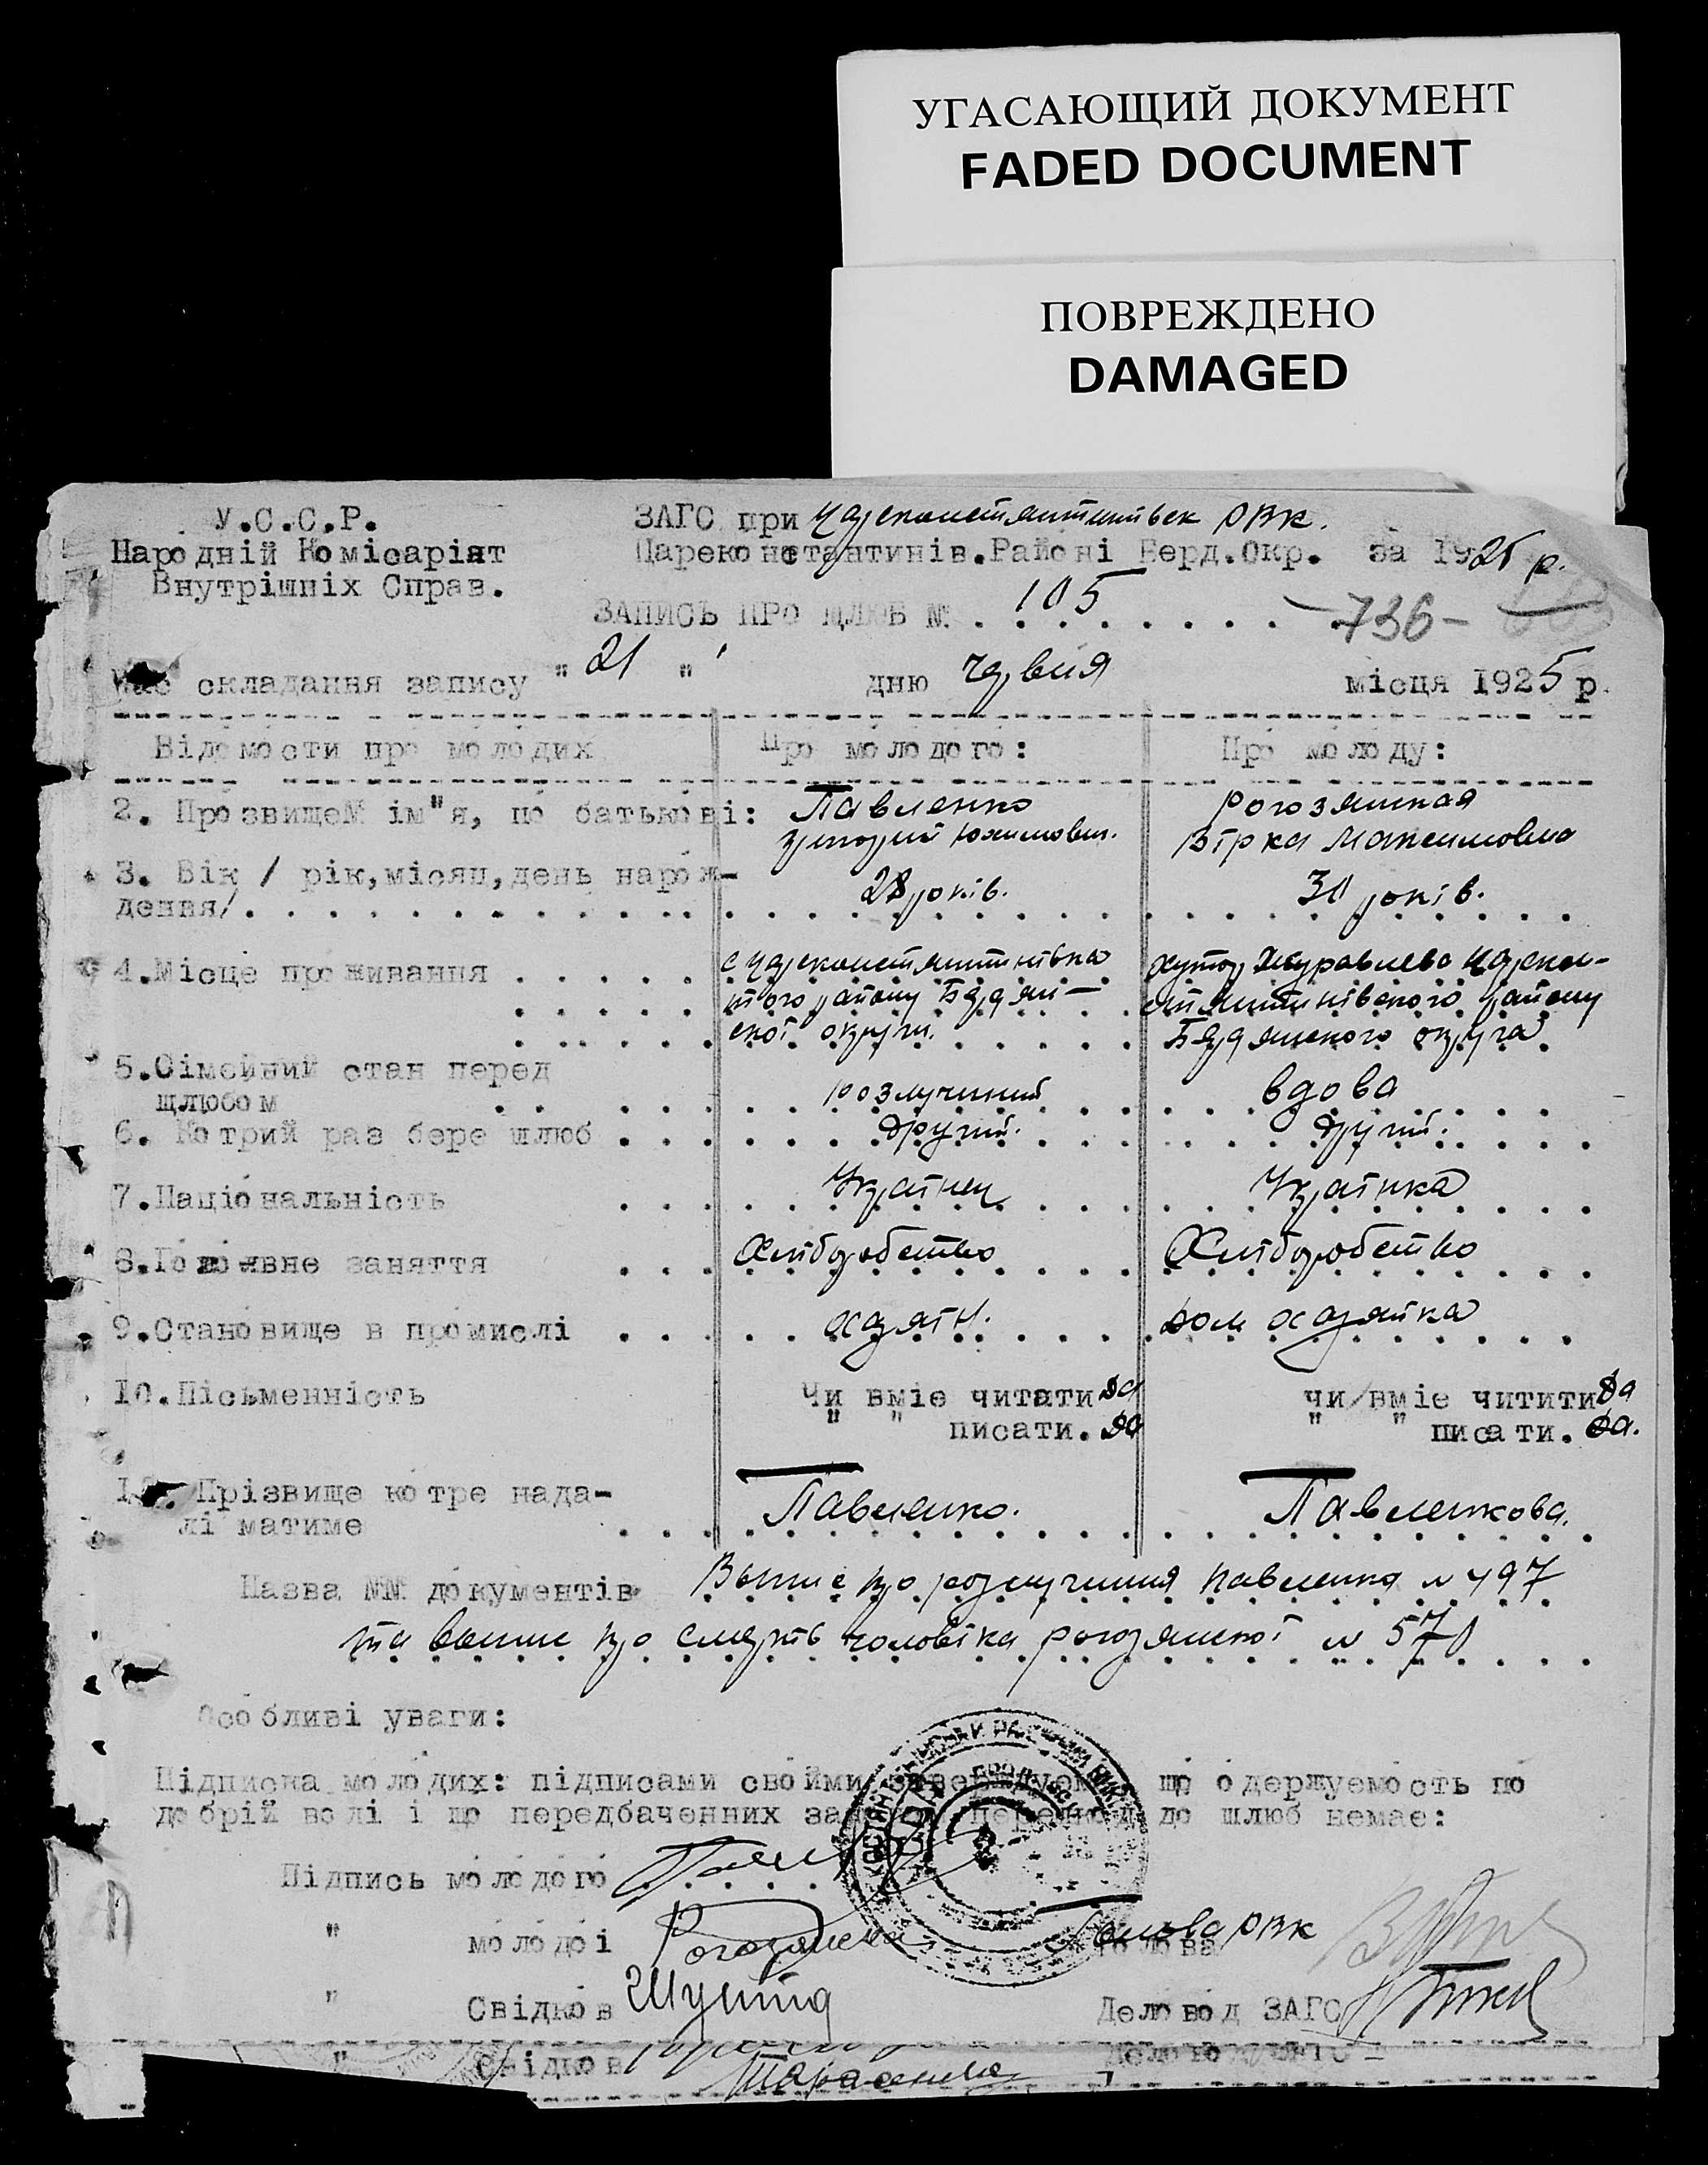 УГАСАЮЩИЙ ДОКУМЕНТ
FADED DOCUMENT
ПОВРЕЖДЕНО
DAMAGED
У.С.С.Р.
Народній Комісаріят
Внутрішніх Справ.
ЗАГС при Царсконстянтинівск РВК.
Цареконстантинів.Районі Берд.Окр. за 1925 р.
ЗАПИСЬ ПРО ЩЛЮБ № 105
-736-
Час складання запису "21" дню червня місця 1925 р.
Відомости про молодих Про молодого: Про молоду:
2. Прозвище ім"я, по батькові: Павленко Рогозянская
Григорий Юхимович. Вірка Максимовна
3. Вік / рік,місяц,день нарож-
дення/ 28 років. 30 років.
4.Місце проживання с Царсконстянтинівка хутор Журавлево Царскон-
того району Бердян- стянтинівского району
скоі округи. Бердянского округа
5.Сімейний стан перед
щлюбом розлучиний вдова
6. Котрий раз бере шлюб другий. другий.
7.Національність Украінец Украінка
8.Головне заняття Хліборобство Хліборобство
9.Становище в промислі хазяін. дом хазяйка
10.Пісьменність Чи вміе читати да чи вміе читити да
" " писати. да " " писати. да.
Прізвище котре нада-
лі матиме Павленко. Павленкова.
Назва №№ документів Выпис про розлучиния Павленка № 497
та выпис про смерть чоловіка Рогозянскоі № 570
Особливі уваги:
Підписка молодих: підписами своїми що одержуемость по
добрій волі і що передбаченних до шлюб немае:
Підпись молодого
" молодоі Рогозянска Голова РВК
" Свідков Деловод ЗАГС
" Свідков Тарасенко